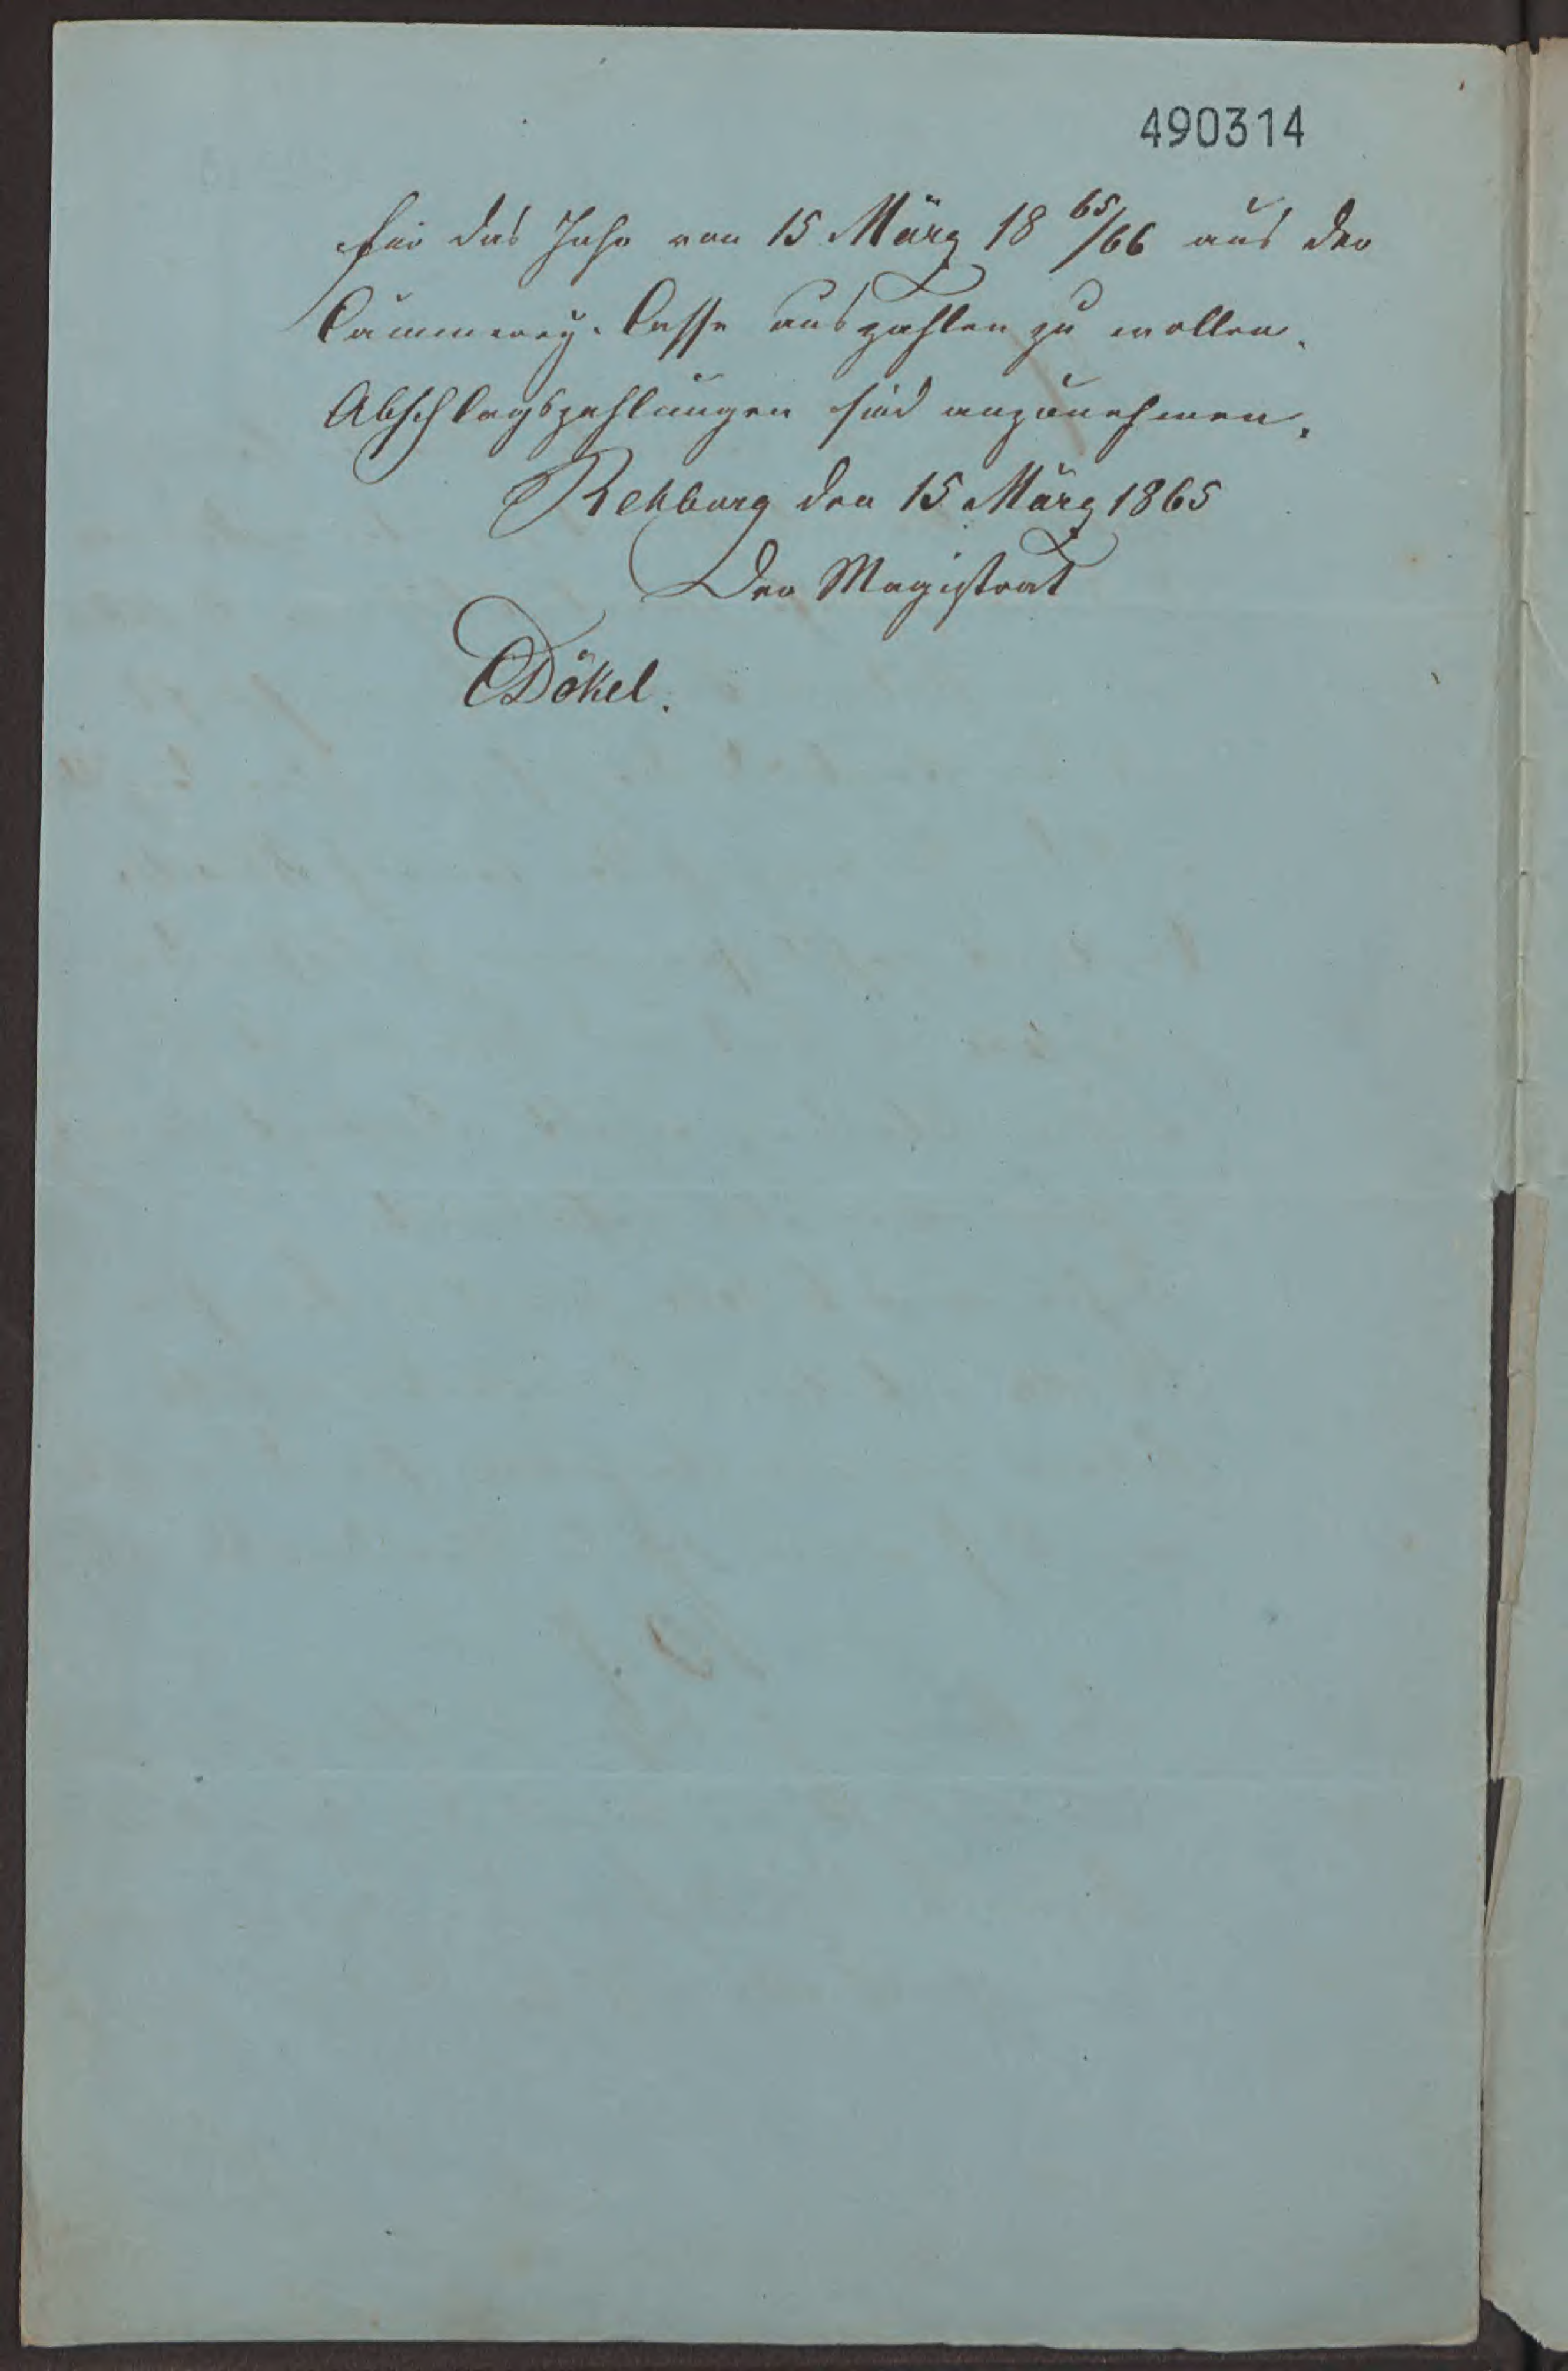 490314
für das Jahr von 15 März 18 65/66 aus der
Cämmerey-Casse auszahlen zu wollen.
Abschlagszahlungen sind anzunehmen.
Rehburg den 15 März 1865
Der Magistrat
Dökel.